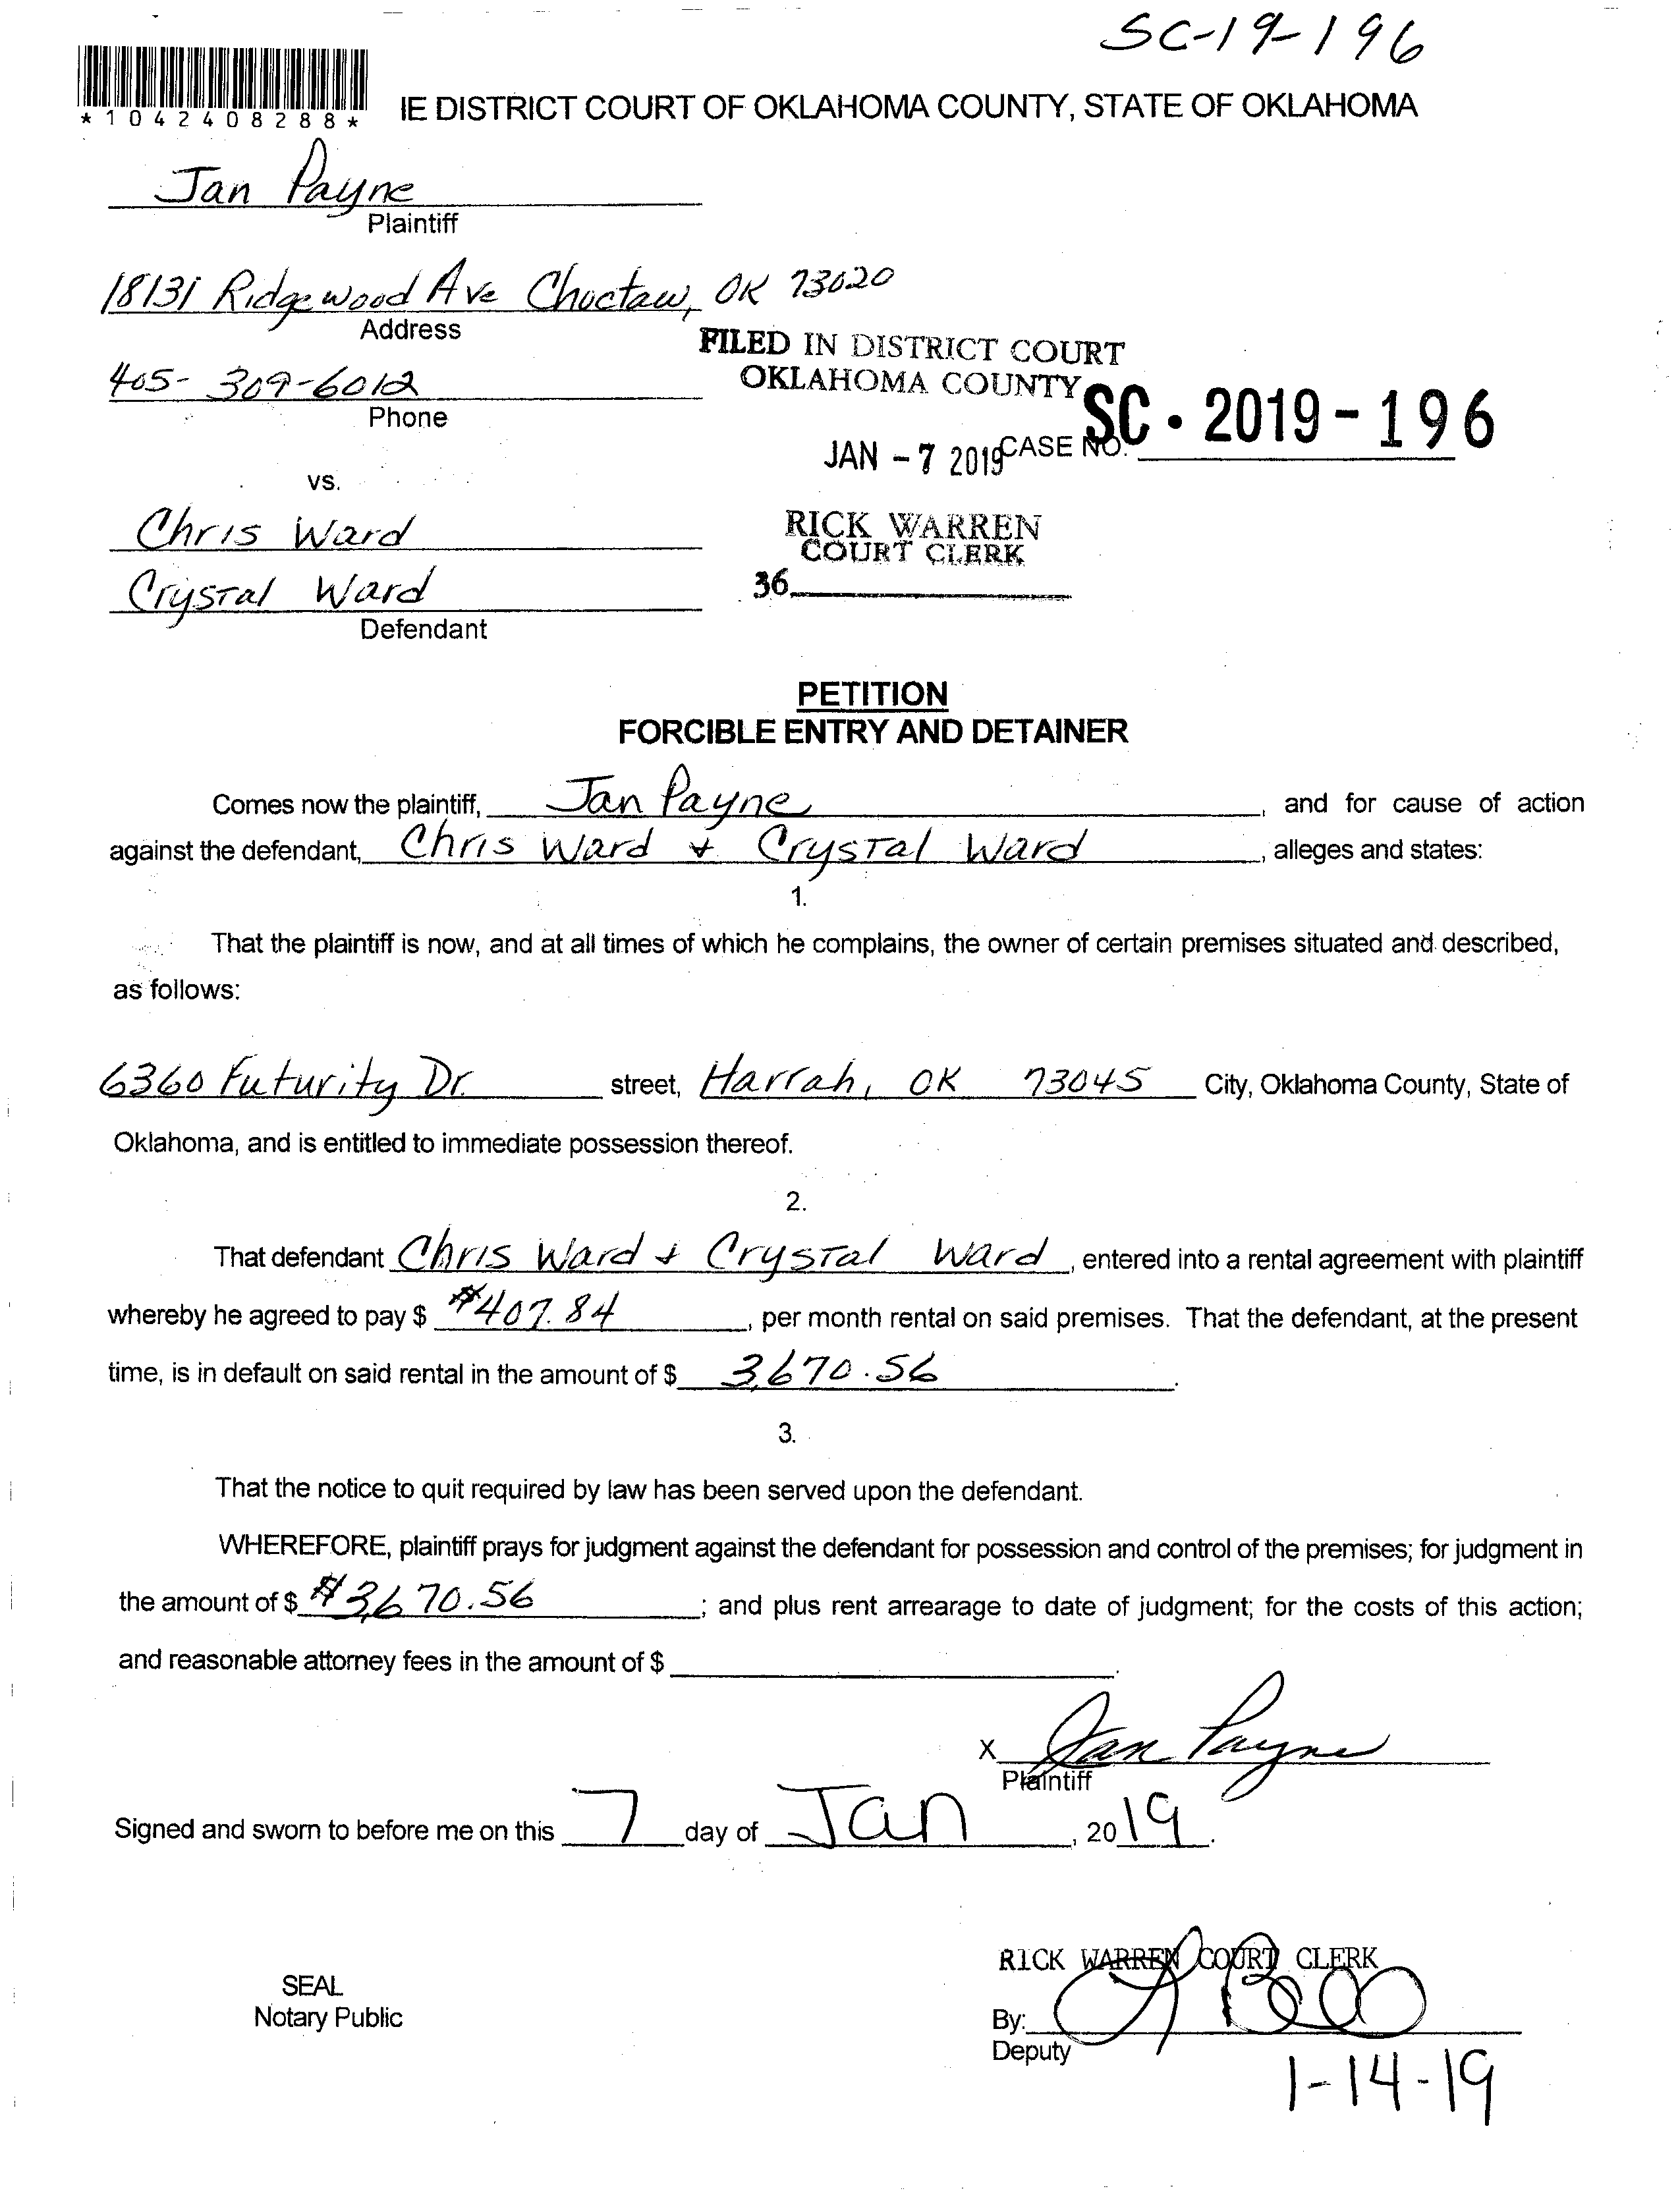 SC-19-196
*1042408288*
IE DISTRICT COURT OF OKLAHOMA COUNTY, STATE OF OKLAHOMA
Jan Payne
Plaintiff
18131 Ridgewood Ave Choctaw, OK 73020
Address
FILED IN DISTRICT COURT
OKLAHOMA COUNTY
405-309-6012
Phone
JAN -7 2019 CASE NO. SC-2019-196
vs.
Chris Ward
RICK WARREN
COURT CLERK
Crystal Ward
36
Defendant
PETITION
FORCIBLE ENTRY AND DETAINER
Comes now the plaintiff, Jan Payne, and for cause of action
against the defendant, Chris Ward + Crystal Ward, alleges and states:
1.
That the plaintiff is now, and at all times of which he complains, the owner of certain premises situated and described,
as follows:
6360 Futurity Dr. street, Harrah, OK 73045 City, Oklahoma County, State of
Oklahoma, and is entitled to immediate possession thereof.
2.
That defendant Chris Ward + Crystal Ward, entered into a rental agreement with plaintiff
whereby he agreed to pay $ $407.84, per month rental on said premises. That the defendant, at the present
time, is in default on said rental in the amount of $ 3,670.56.
3.
That the notice to quit required by law has been served upon the defendant.
WHEREFORE, plaintiff prays for judgment against the defendant for possession and control of the premises; for judgment in
the amount of $ $3,670.56; and plus rent arrearage to date of judgment; for the costs of this action;
and reasonable attorney fees in the amount of $.
X Jan Payne
Plaintiff
Signed and sworn to before me on this 7 day of Jan, 2019.
RICK WARREN COURT CLERK
SEAL
Notary Public
By:
Deputy
1-14-19